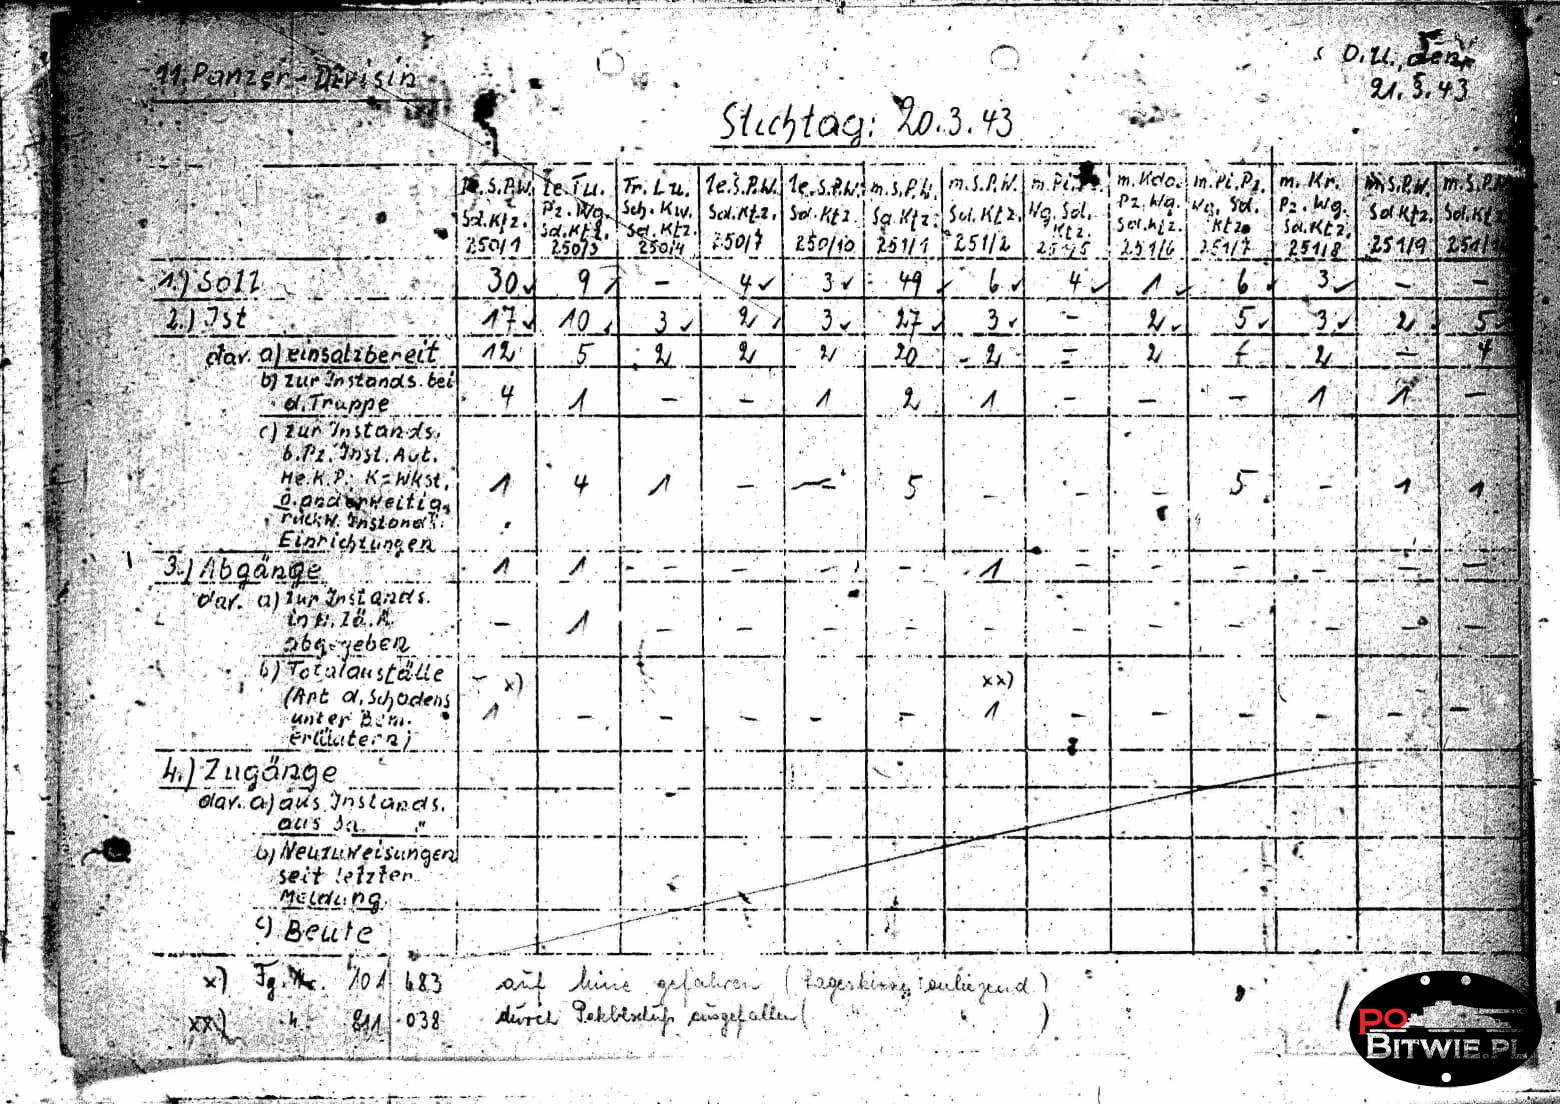 11. Panzer-Divisin
O.U., den
21.3.43
Stichtag: 20.3.43
le. S.P.W. Sd. Ktz. 250/1
le. Fu. Pz. Wg. Sd. Ktz. 250/3
Tr. Lu. Sch. Kw. Sd. Ktz. 250/4
le. S.P.W. Sd. Ktz. 250/7
le. S.P.W. Sd. Ktz. 250/10
m. S.P.W. Sd. Ktz. 251/1
m. S.P.W. Sd. Ktz. 251/2
m. Pi. Wg. Sd. Ktz. 251/5
m. Kdo. Pz. Wg. Sd. Ktz. 251/6
m. Pi. Pz. Wg. Sd. Ktz. 251/7
m. Kr. Pz. Wg. Sd. Ktz. 251/8
m. S.P.W. Sd. Ktz. 251/9
m. S.P.W. Sd. Ktz.
1.) Soll 30 9 - 4 3 49 6 4 1 6 3 - -
2.) Ist 17 10 3 2 3 27 3 - 2 5 3 2 5
dav. a) einsatzbereit 12 5 2 2 2 20 2 - 2 - 2 - 4
b) zur Instands. bei
d. Truppe 4 1 - - 1 2 1 - - - 1 1 -
c) zur Instands.
b. Pz. Inst. Abt.
We. K.P. K=Wkst. 1 4 1 - - 5 - - - 5 - 1 1
o. anderweitig.
rückw. Instands.
Einrichtungen
3.) Abgänge 1 1 - - - - 1 - - - - - -
dav. a) zur Instands.
in H.Zä.A. - 1 - - - - - - - - - - -
abgegeben
b) Totalausfälle x) xx)
(Art d. Schadens
unter Bem. 1 - - - - - 1 - - - - - -
erläutern)
4.) Zugänge
dav. a) aus Instands.
aus Sa. "
b) Neuzuweisungen
seit letzter
Meldung
c) Beute
x) Fg. Nr. 101 683 auf Mine gefahren ( anliegend )
xx) " 811 038 durch Pakbeschuß ausgefallen ( " " )
PO
BITWIE.PL